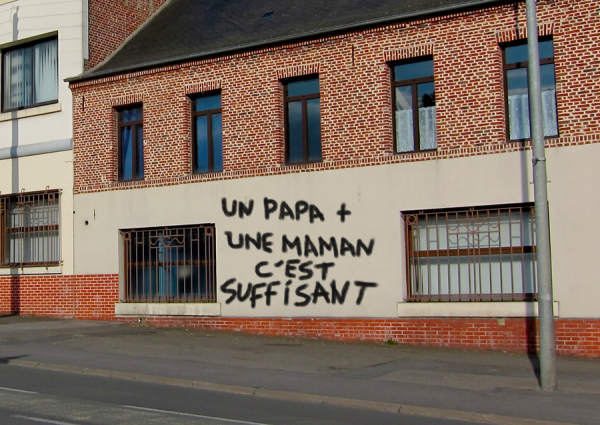 UN PAPA +
UNE MAMAN
C'EST
SUFFISANT